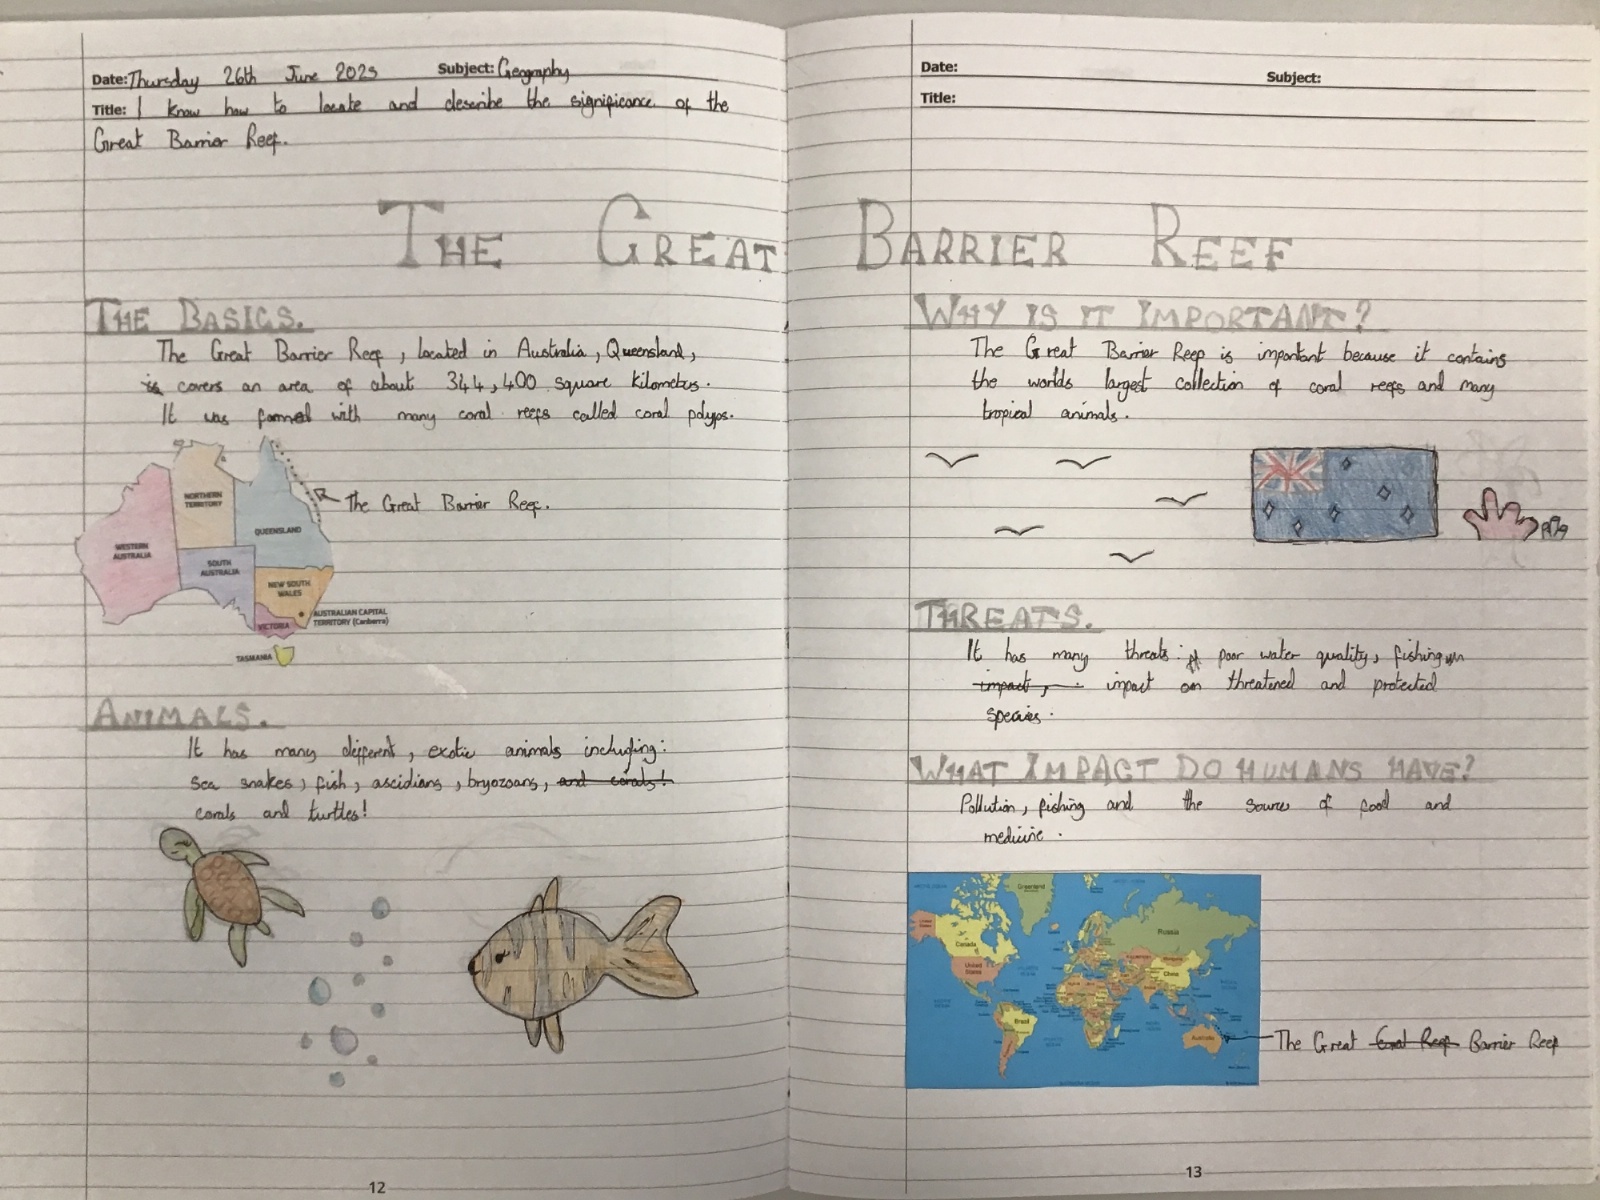 Date: Thursday 26th June 2025 Subject: Geography
Title: I know how to locate and describe the significance of the
Great Barrier Reef.
Date: Subject:
Title:
THE GREAT BARRIER REEF
THE BASICS.
The Great Barrier Reef, located in Australia, Queensland,
is covers an area of about 344,400 square kilometers.
It was formed with many coral reefs called coral polyps.
NORTHERN
TERRITORY
QUEENSLAND
WESTERN
AUSTRALIA
SOUTH
AUSTRALIA
NEW SOUTH
WALES
AUSTRALIAN CAPITAL
TERRITORY (Canberra)
VICTORIA
TASMANIA
The Great Barrier Reef.
ANIMALS.
It has many different, exotic animals including:
sea snakes, fish, ascidians, bryozoans, and corals!
corals and turtles!
12
WHY IS IT IMPORTANT?
The Great Barrier Reef is important because it contains
the worlds largest collection of coral reefs and many
tropical animals.
THREATS.
It has many threats: poor water quality, fishing
impact, impact on threatened and protected
species.
WHAT IMPACT DO HUMANS HAVE?
Pollution, fishing and the source of food and
medicine.
Greenland
Russia
Canada
United
States
China
Brazil
Australia
The Great Coral Reef Barrier Reef
13